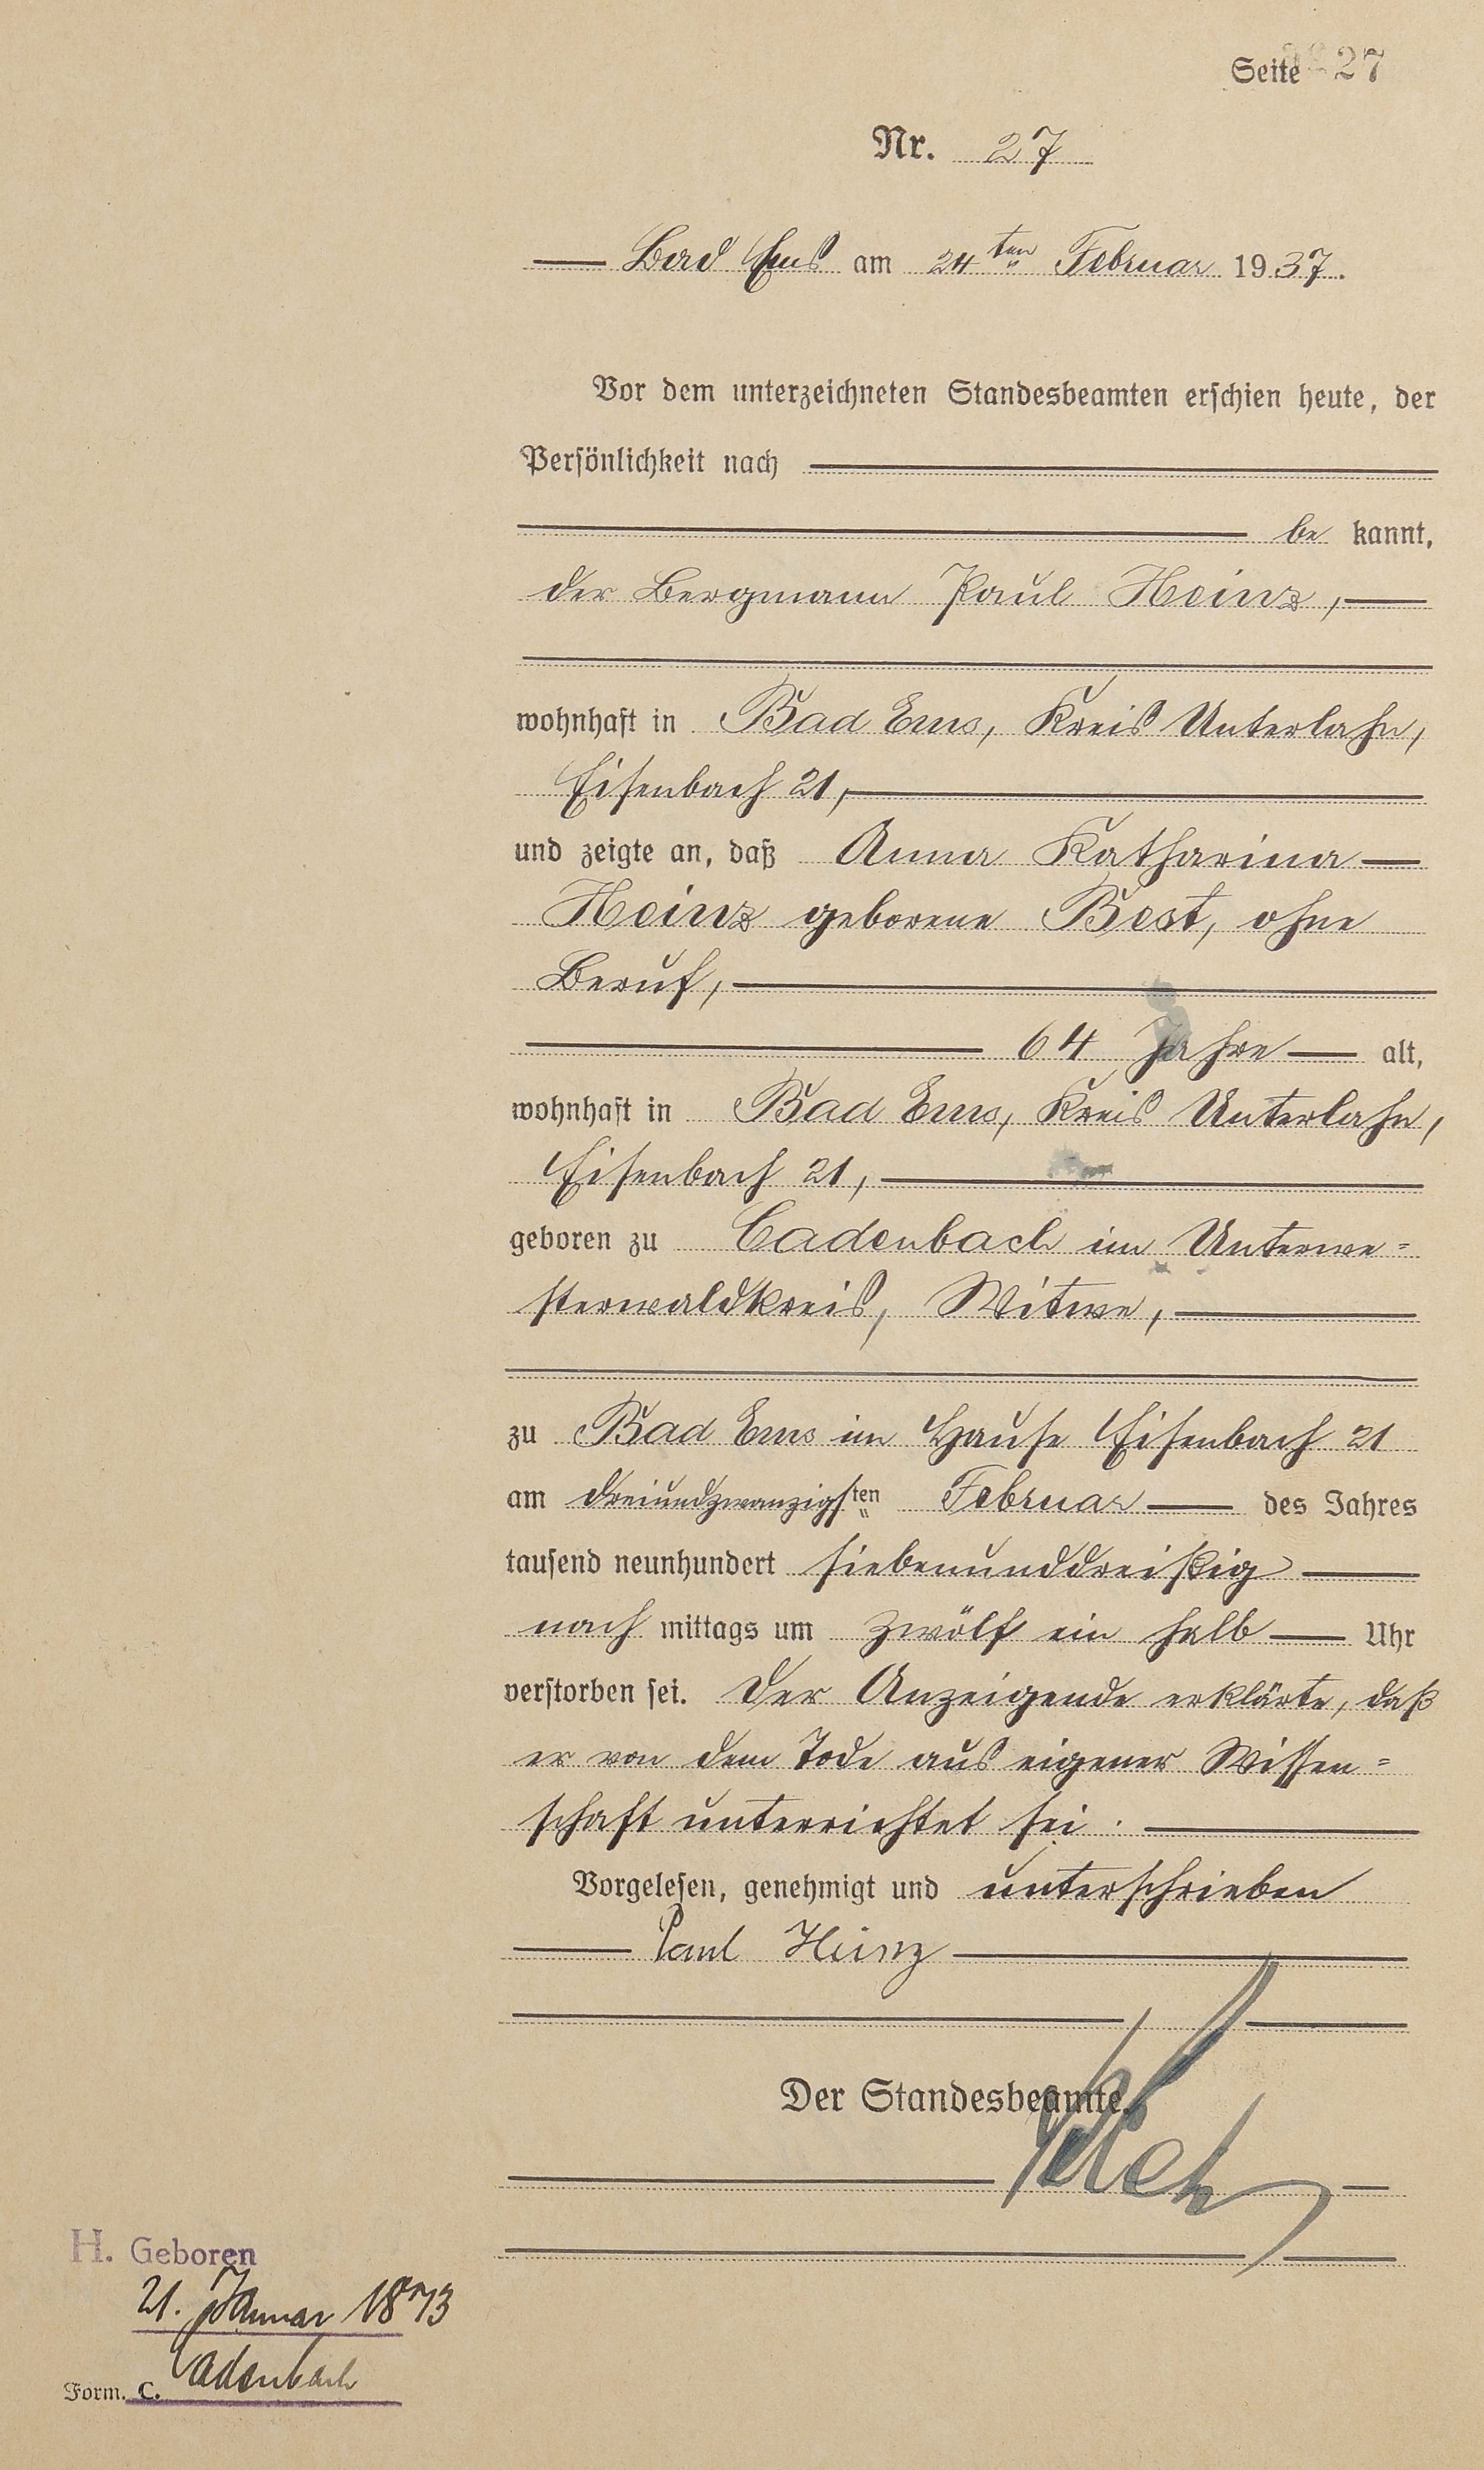 Seite 27
Nr. 27
Bad Ems am 24ten Februar 1937.
Vor dem unterzeichneten Standesbeamten erschien heute, der
Persönlichkeit nach
be kannt,
der Bergmann Paul Heinz,
wohnhaft in Bad Ems, Kreis Unterlahn,
Eisenbach 21,
und zeigte an, daß Anna Katharina
Heinz geborene Best, ohne
Beruf,
64 Jahre alt,
wohnhaft in Bad Ems, Kreis Unterlahn,
Eisenbach 21,
geboren zu Cadenbach im Unterwe=
sterwaldkreis, Witwe,
zu Bad Ems im Hause Eisenbach 21
am dreiundzwanzigsten Februar des Jahres
tausend neunhundert siebenunddreißig
nach mittags um zwölf ein halb Uhr
verstorben sei. Der Anzeigende erklärte, daß
er von dem Tode aus eigener Wissen=
schaft unterrichtet sei.
Vorgelesen, genehmigt und unterschrieben
Paul Heinz
Der Standesbeamte.
H. Geboren
21. Januar 1873
Cadenbach
Form. C.